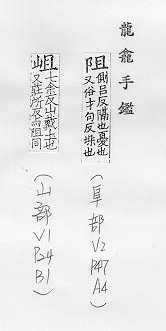 龍龕手鑑
阻
側呂反隔也憂也
又俗才句反也
（阜部 V2 P47 A4）
岨
七余反山戴土也
又所阻同
（山部 V1 P24 B1）